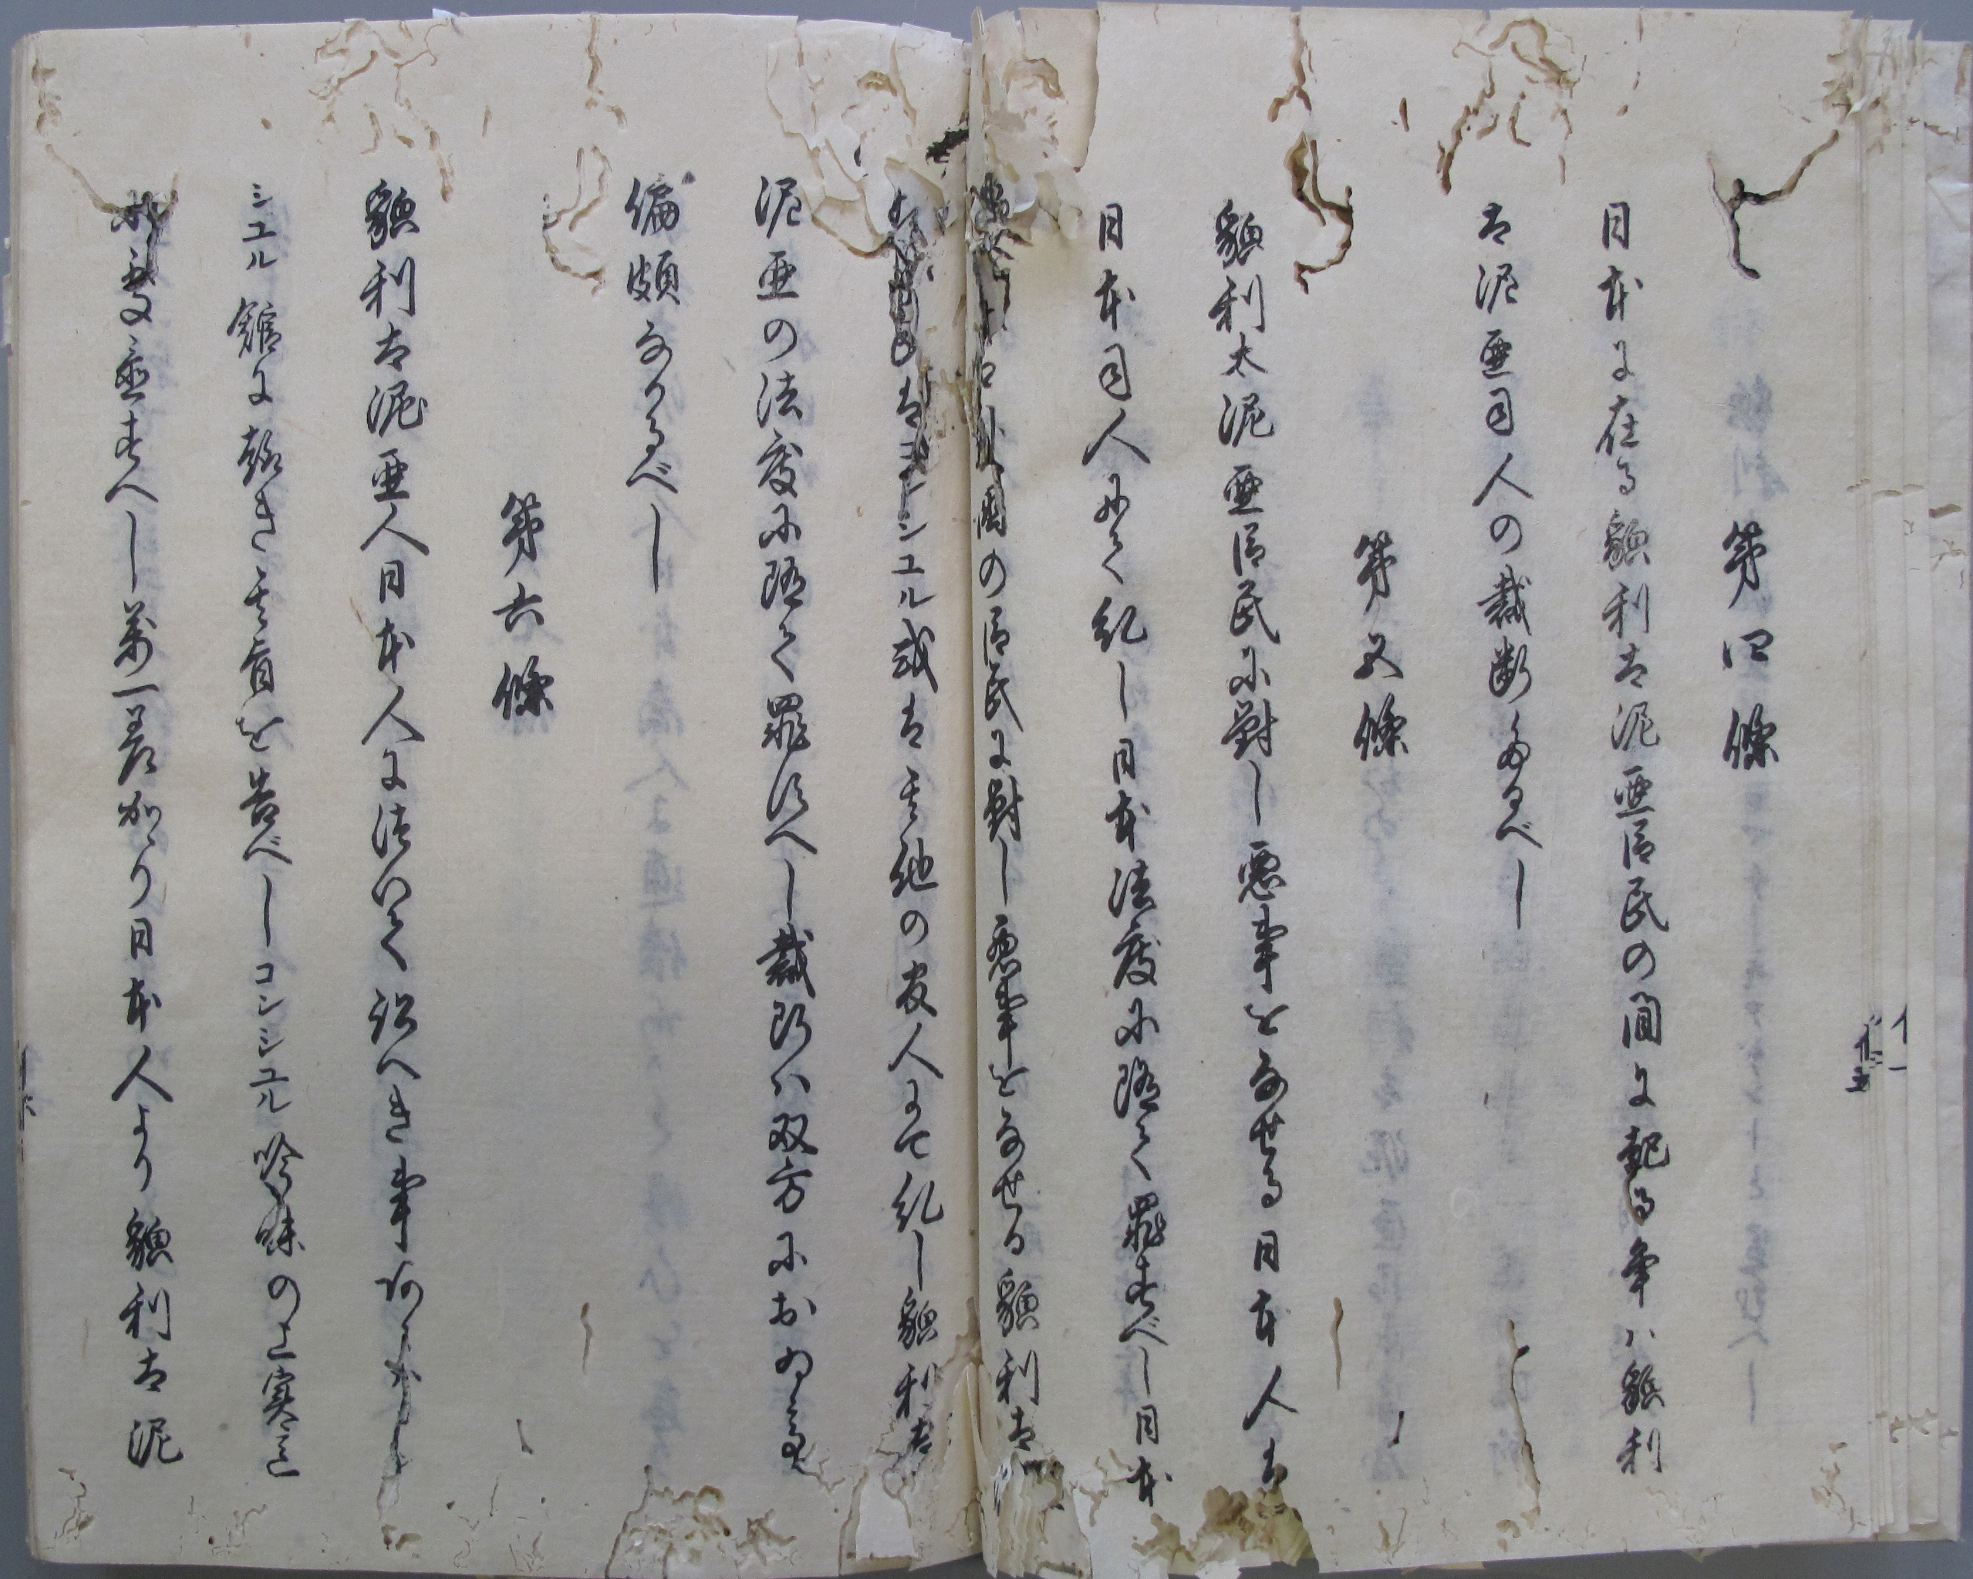 第四條
日本に在る貌利太泥亜臣民の間に起る争ハ貌利
太泥亜司人の裁断たるべし
第五條
貌利太泥亜臣民に對し悪事をなせる日本人ハ
日本司人にて糺し日本法度に随て罪すべし日本
外國の臣民に對し悪事をなせる貌利太
コンシユル或は其他の官人にて糺し貌利太
泥亜の法度に随て罪すへし裁断ハ双方におゐて
偏頗なかるべし
第六條
貌利太泥亜人日本人に付いて訟へき事あらハ
シユル館に趣き其旨を告べしコンシユル吟味の上実意
に處置すへし萬一差かゝり日本人より貌利太泥